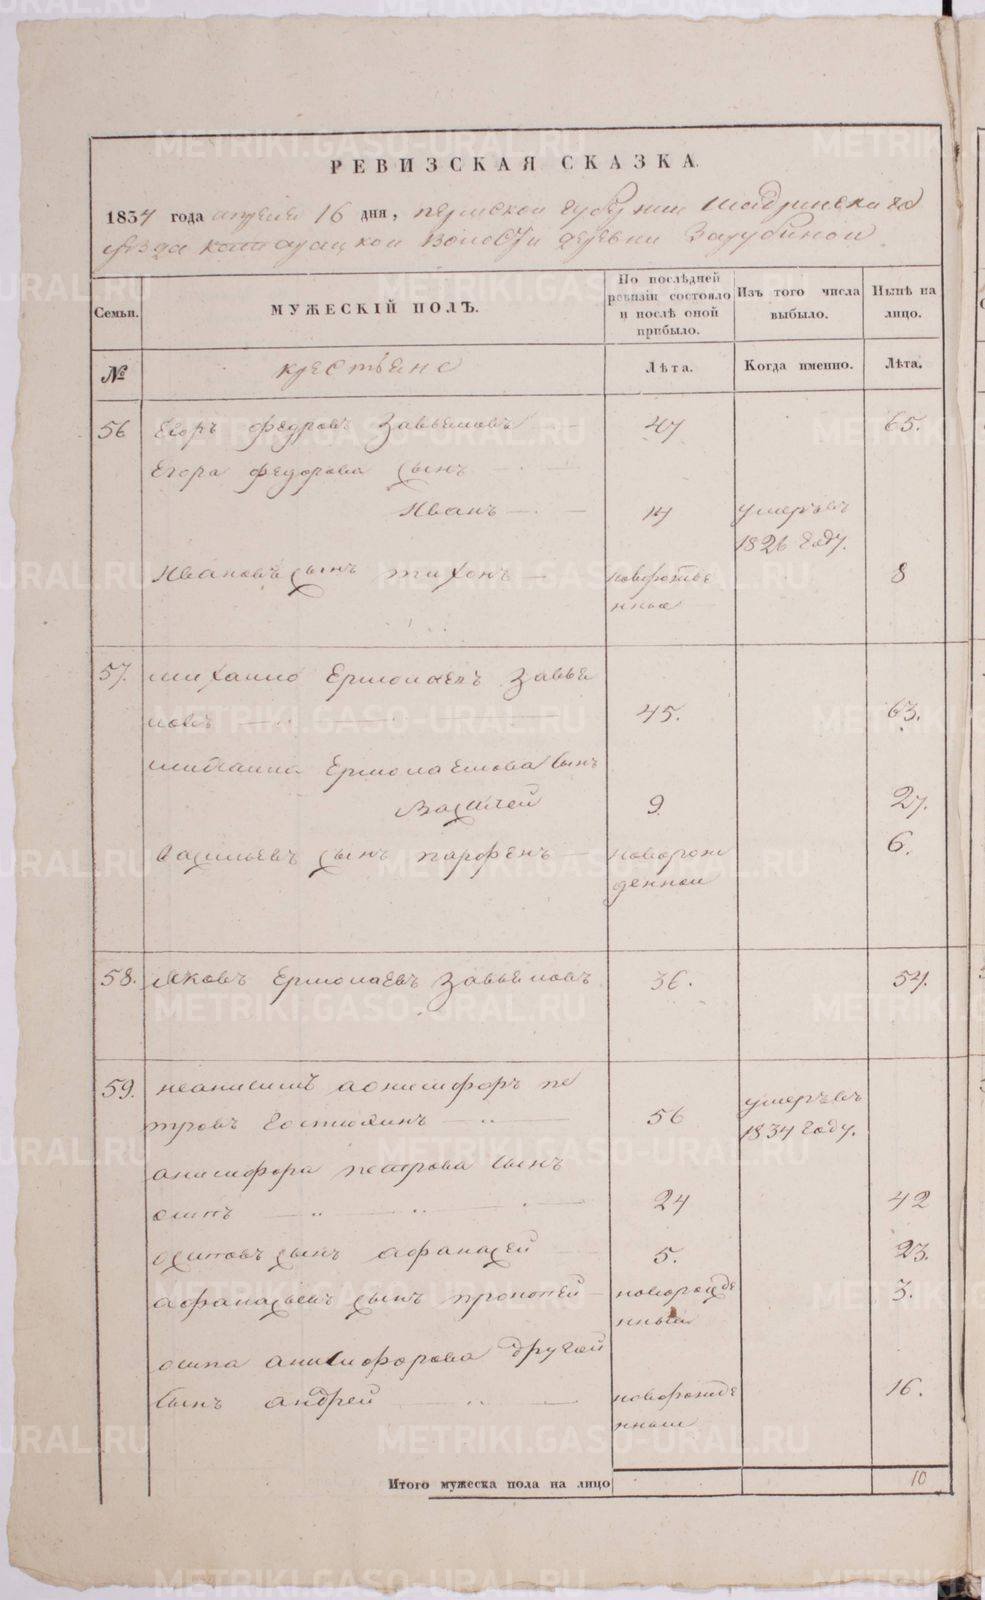 РЕВИЗСКАЯ СКАЗКА
1834 года апреля 16 дня, пермской губернии шадринскаго
уезда волости деревни Зарубиной
Семьи.
МУЖЕСКІЙ ПОЛЪ.
По послѣдней ревизіи состояло и послѣ оной прибыло.
Изъ того числа выбыло.
Нынѣ на лицо.
№
крестьяне
Лѣта.
Когда именно.
Лѣта.
56 Егоръ федровъ Завьяловъ 47 65.
Егора федорова сынъ
Иванъ 14 умеръ въ
1826 году.
Ивановъ сынъ тихонъ новорожде 8
нные
57. михаило Ермолаевъ Завья
ловъ 45. 63.
михаила Ермолаева сынъ
Василей 9. 27.
Васильевъ сынъ парфенъ новорож 6.
денной
58. Яковъ Ермолаевъ завьяловъ 36. 54.
59. анисифоръ пе
тровъ 56 умеръ въ
1834 году.
анисифора петрова сынъ
осипъ 24 42
осиповъ сынъ афанасей 5. 23.
афанасьевъ сынъ прокопей новорожде 3.
нный
осипа анисифорова другой
сынъ андрей новорожде 16.
нный
Итого мужеска пола на лицо 10
METRIKI.GASO-URAL.RU